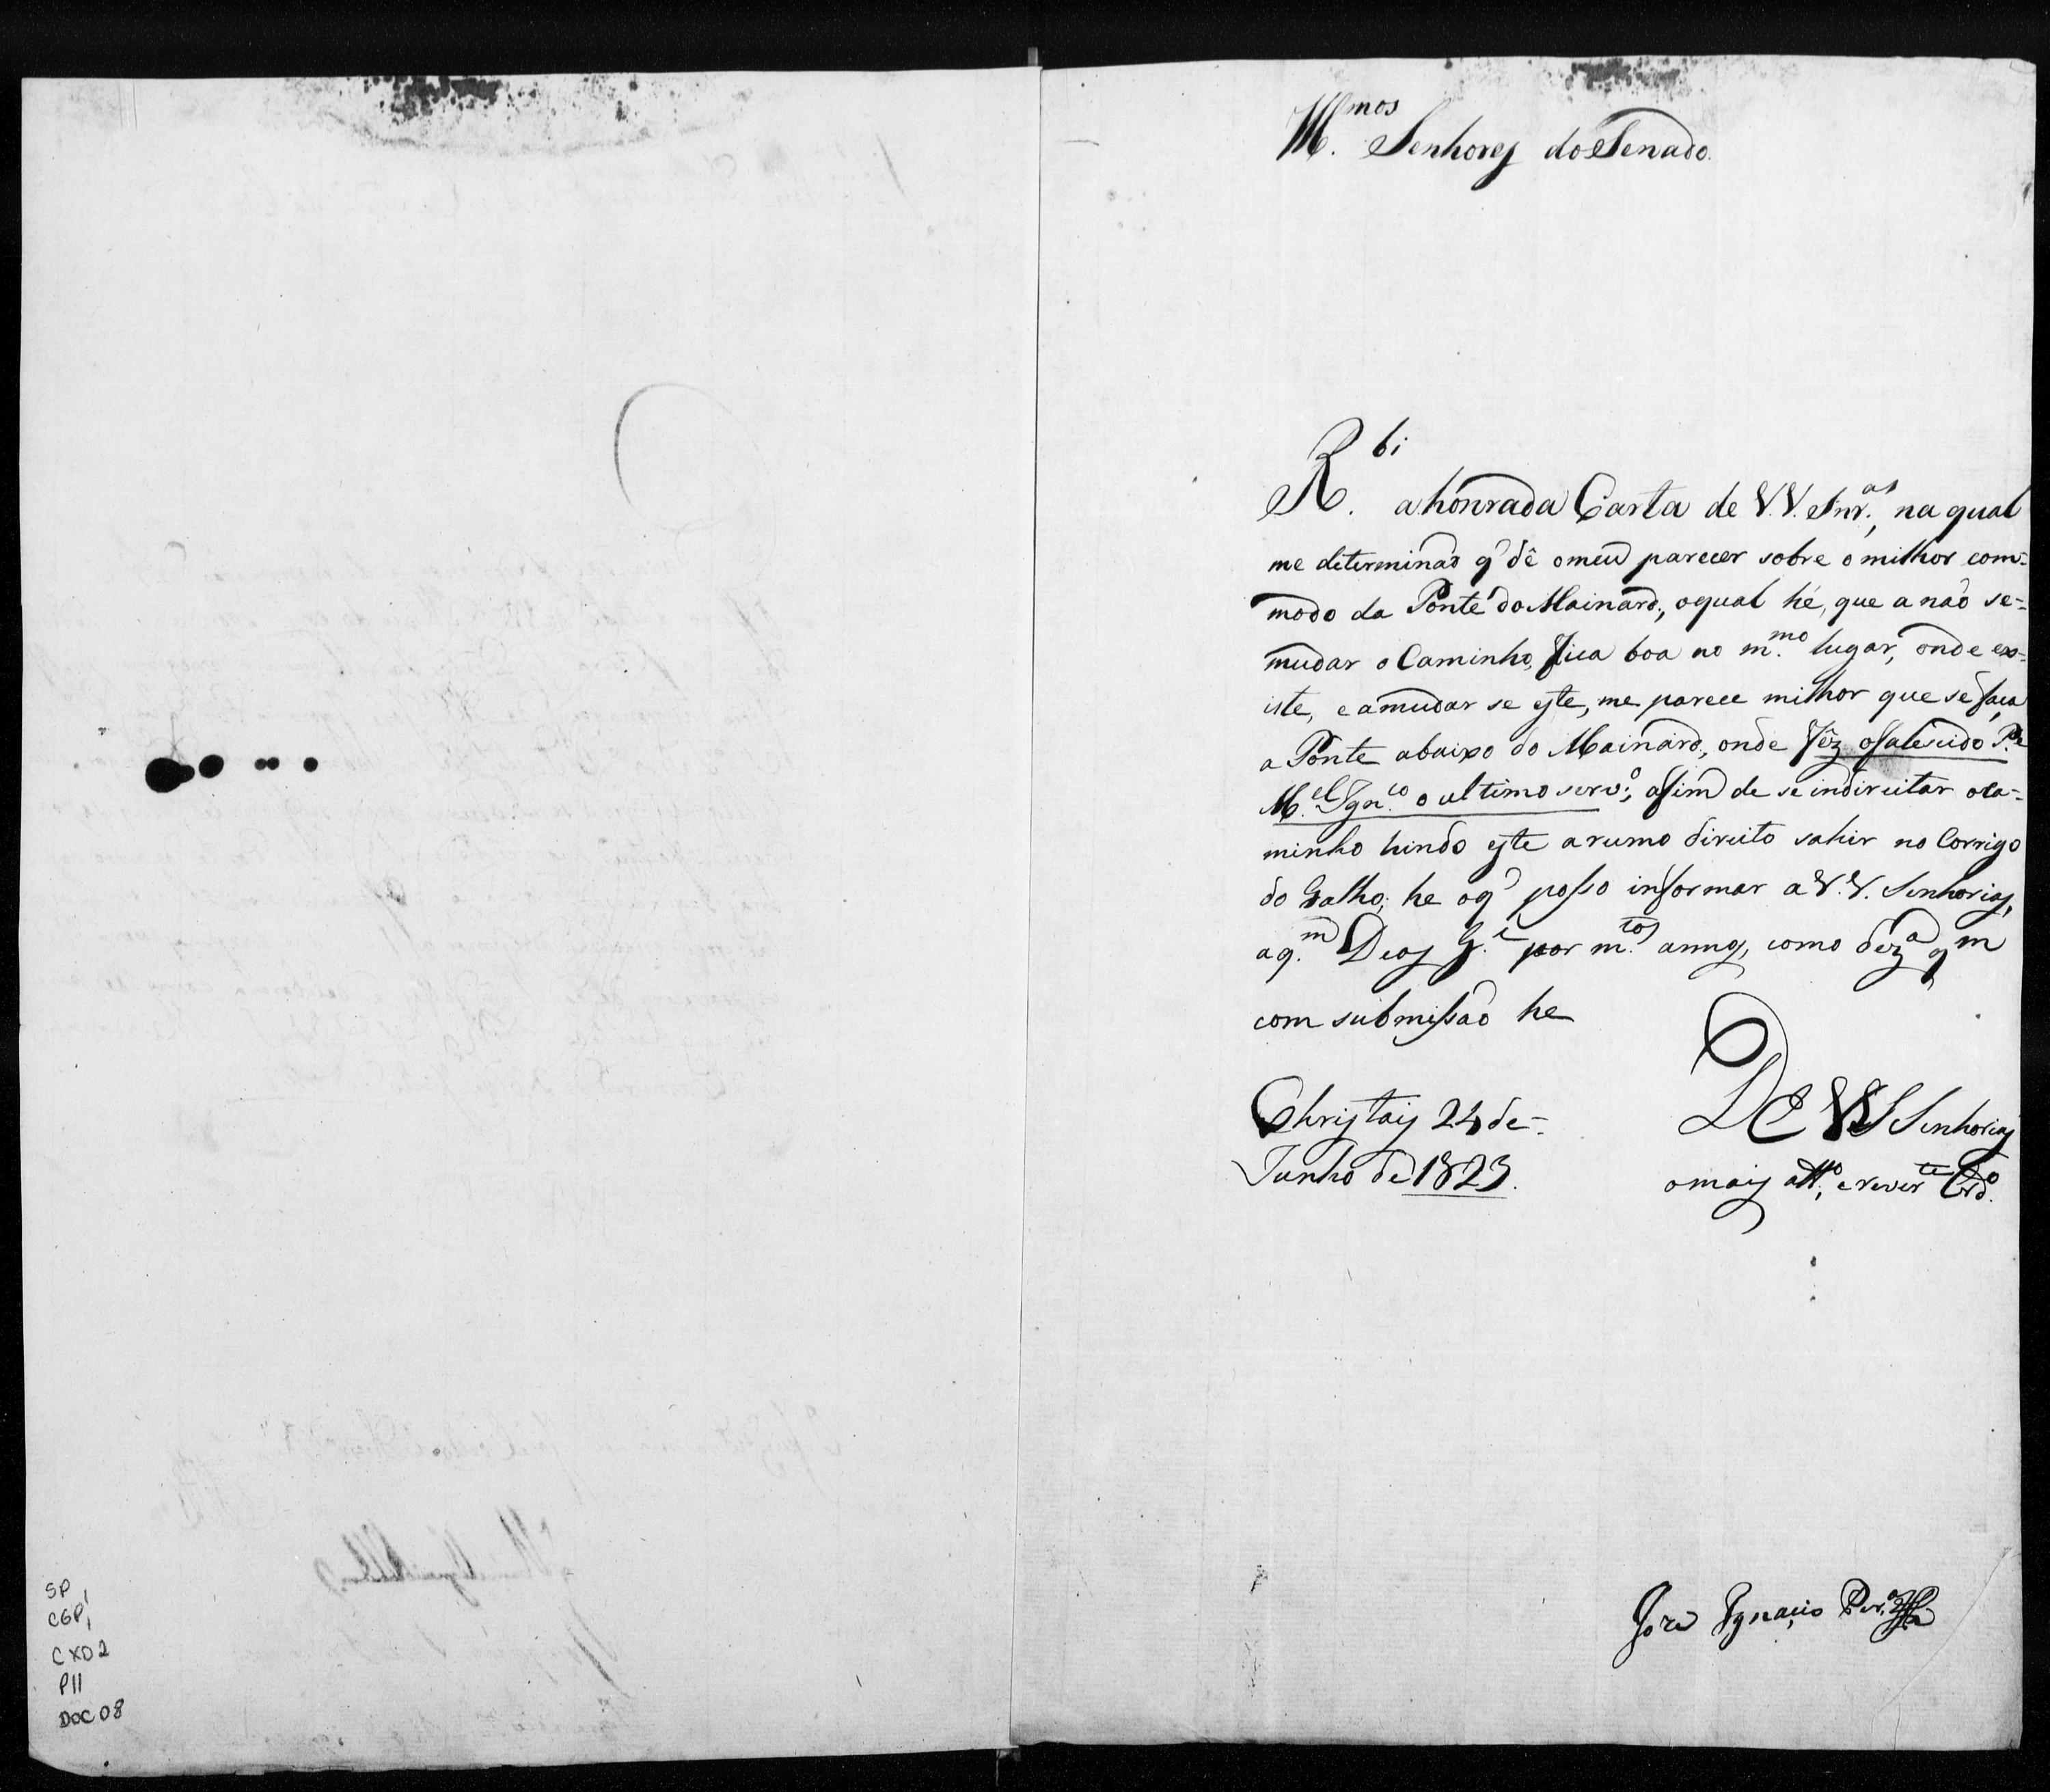 SP
CGP1
CX02
P11
DOC 08
Illmos Senhores do Senado.
Rbi a honrada Carta de V.V. Snras, na qual
me determinaõ q' dê o meu parecer sobre o milhor com-
modo da Ponte do Mainard, o qual hé, que a naõ se-
mudar o Caminho, fica boa no m.mo lugar, onde ex-
iste, e a mudar se este, me parece milhor que se faça
a Ponte abaixo do Mainard, onde fêz o falescido P.e
M.el Ign.co o ultimo serv.o, afim de se indireitar o ca-
minho hindo este a rumo direito sahir no Corrigo
do Galho; he o q' posso informar a V.V. Senhorias,
a q.m Deos G.e por m.tos annos, como dez.a q.m
com submissaõ he
Christais 24 de-
Junho de 1823.
De VV SSenhorias
o mais att.o, e rever.te Crd.o
Joze Ignacio Per.a